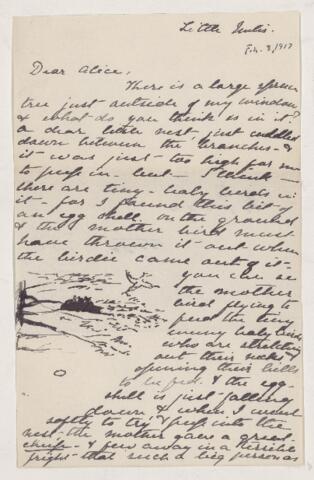 Little
Feb. 3/1917
Dear Alice,
There is a large spruce
tree just outside of my window
& what do you think is in it?
a dear little nest, just cuddled
down between the branches - &
it was just too high for me
to peep in - but - I think
there are tiny - baby birds in
it - for I found this bit of
an egg shell on the ground
& the mother bird must
have thrown it out when
the birdie came out of it -
you can see
the mother
bird flying to
feed the tiny
weeny baby birds
who are stretching
out their necks &
opening their bills
to be fed. & the egg-
shell is just falling
down, & when I went
softly to try & peep into the
nest - the mother gave a great
chirp - & flew away in a terrible
fright - that such a big person as